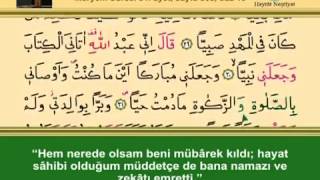 Hayrât Neşriyat
كَانَ فِي الْمَهْدِ صَبِيًّا ﴿٢٩﴾ قَالَ اِنّٖي عَبْدُ اللّٰهِ اٰتَانِيَ الْكِتَابَ
وَجَعَلَنٖي نَبِيًّا ﴿٣٠﴾ وَجَعَلَنٖي مُبَارَكًا اَيْنَ مَا كُنْتُ وَاَوْصَانٖي
بِالصَّلٰوةِ وَالزَّكٰوةِ مَا دُمْتُ حَيًّا ﴿٣١﴾ وَبَرًّا بِوَالِدَتٖي وَلَمْ
“Hem nerede olsam beni mübârek kıldı; hayat
sâhibi olduğum müddetçe de bana namazı ve
zekâtı emretti.”